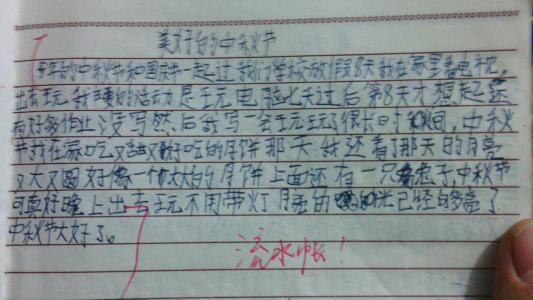 美好的中秋节
今年的中秋节和国庆一起过我们学校放假8天我在家里看电视,
出去玩我主要的活动是玩电脑七天过后第8天才想起还
有好多作业没写然后我写一会玩玩了很长时间,中秋
节我在家吃又甜又好吃的月饼那天我还看了那天的月亮
又大又圆好像一个大大的月饼上面还有一只兔子中秋节
可真好晚上出去玩不用带灯月亮的光已经够亮了
中秋节太好了。
流水帐!